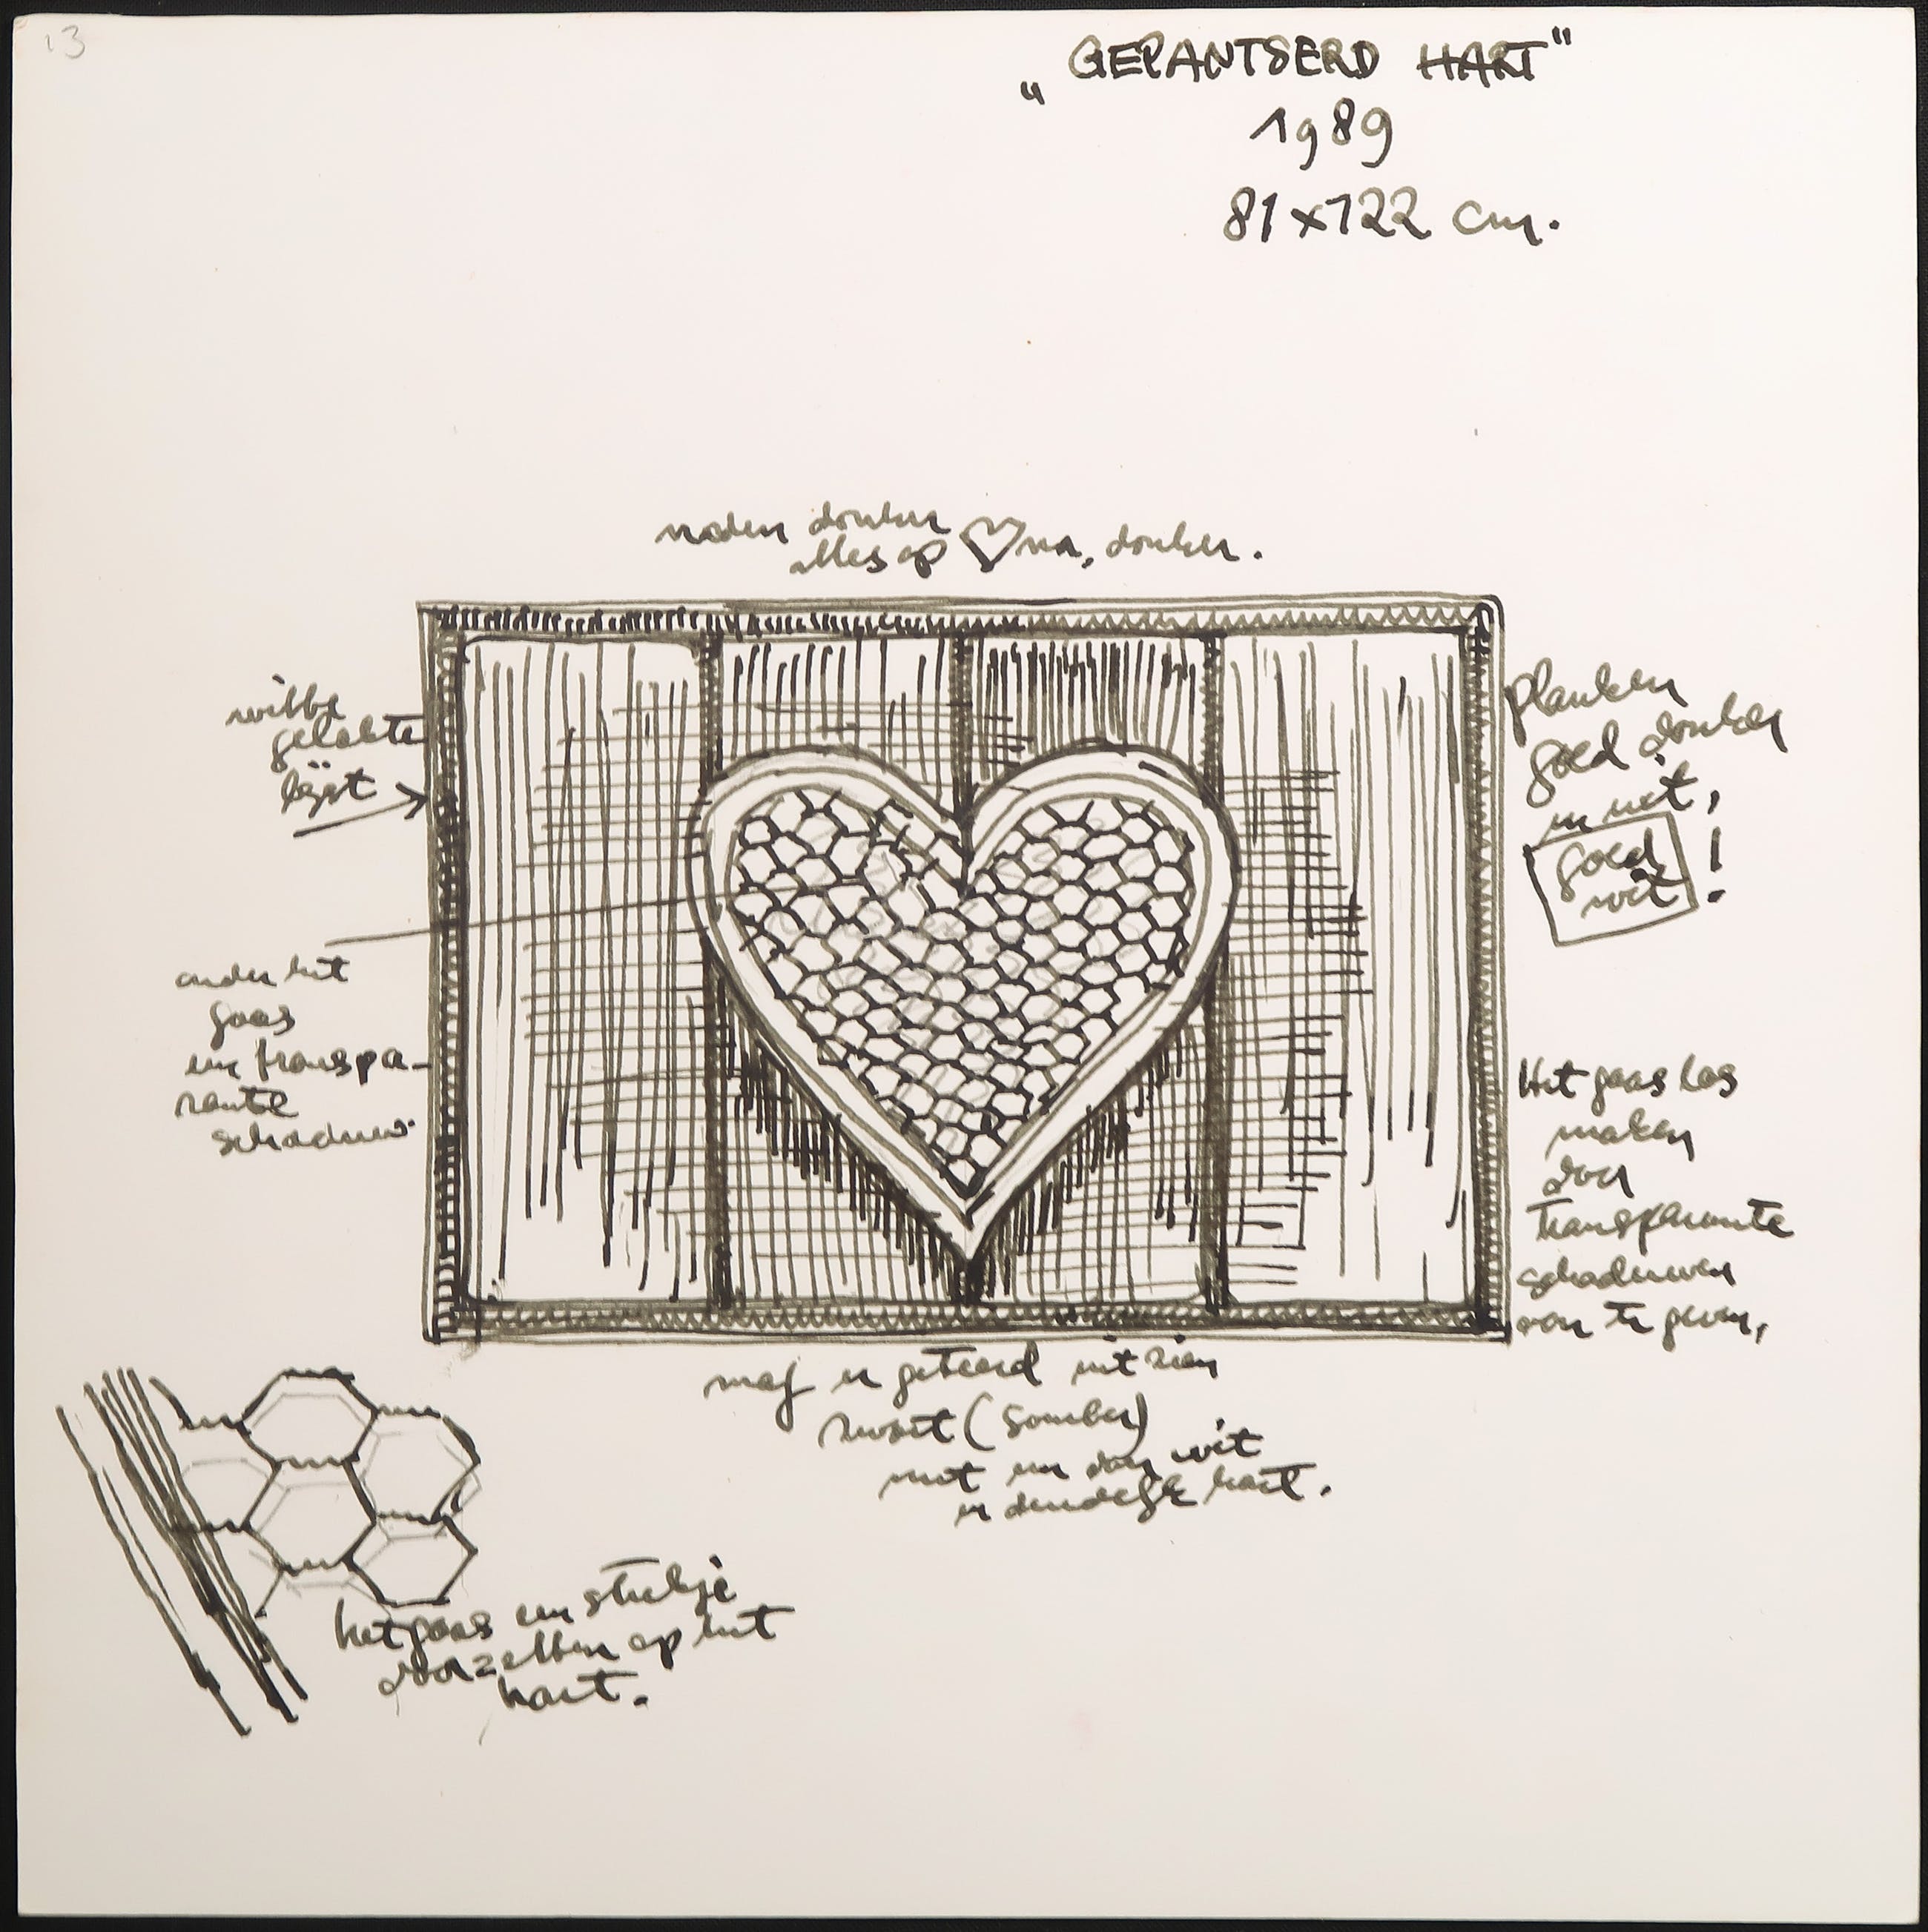 13
„GEPANTSERD HART"
1989
81x122 cm.
naden donker
alles op ♡ na, donker.
witte
gelakte
lijst
planken
goed donker
en nat,
goed !
wit
onder het
gaas
een transpa-
rante
schaduw.
Het gaas los
maken
door
transparante
schaduwen
van te geven,
mag er geteerd uit zien
zwart (somber)
met een wit
hart.
het gaas een stukje
op het
hart.